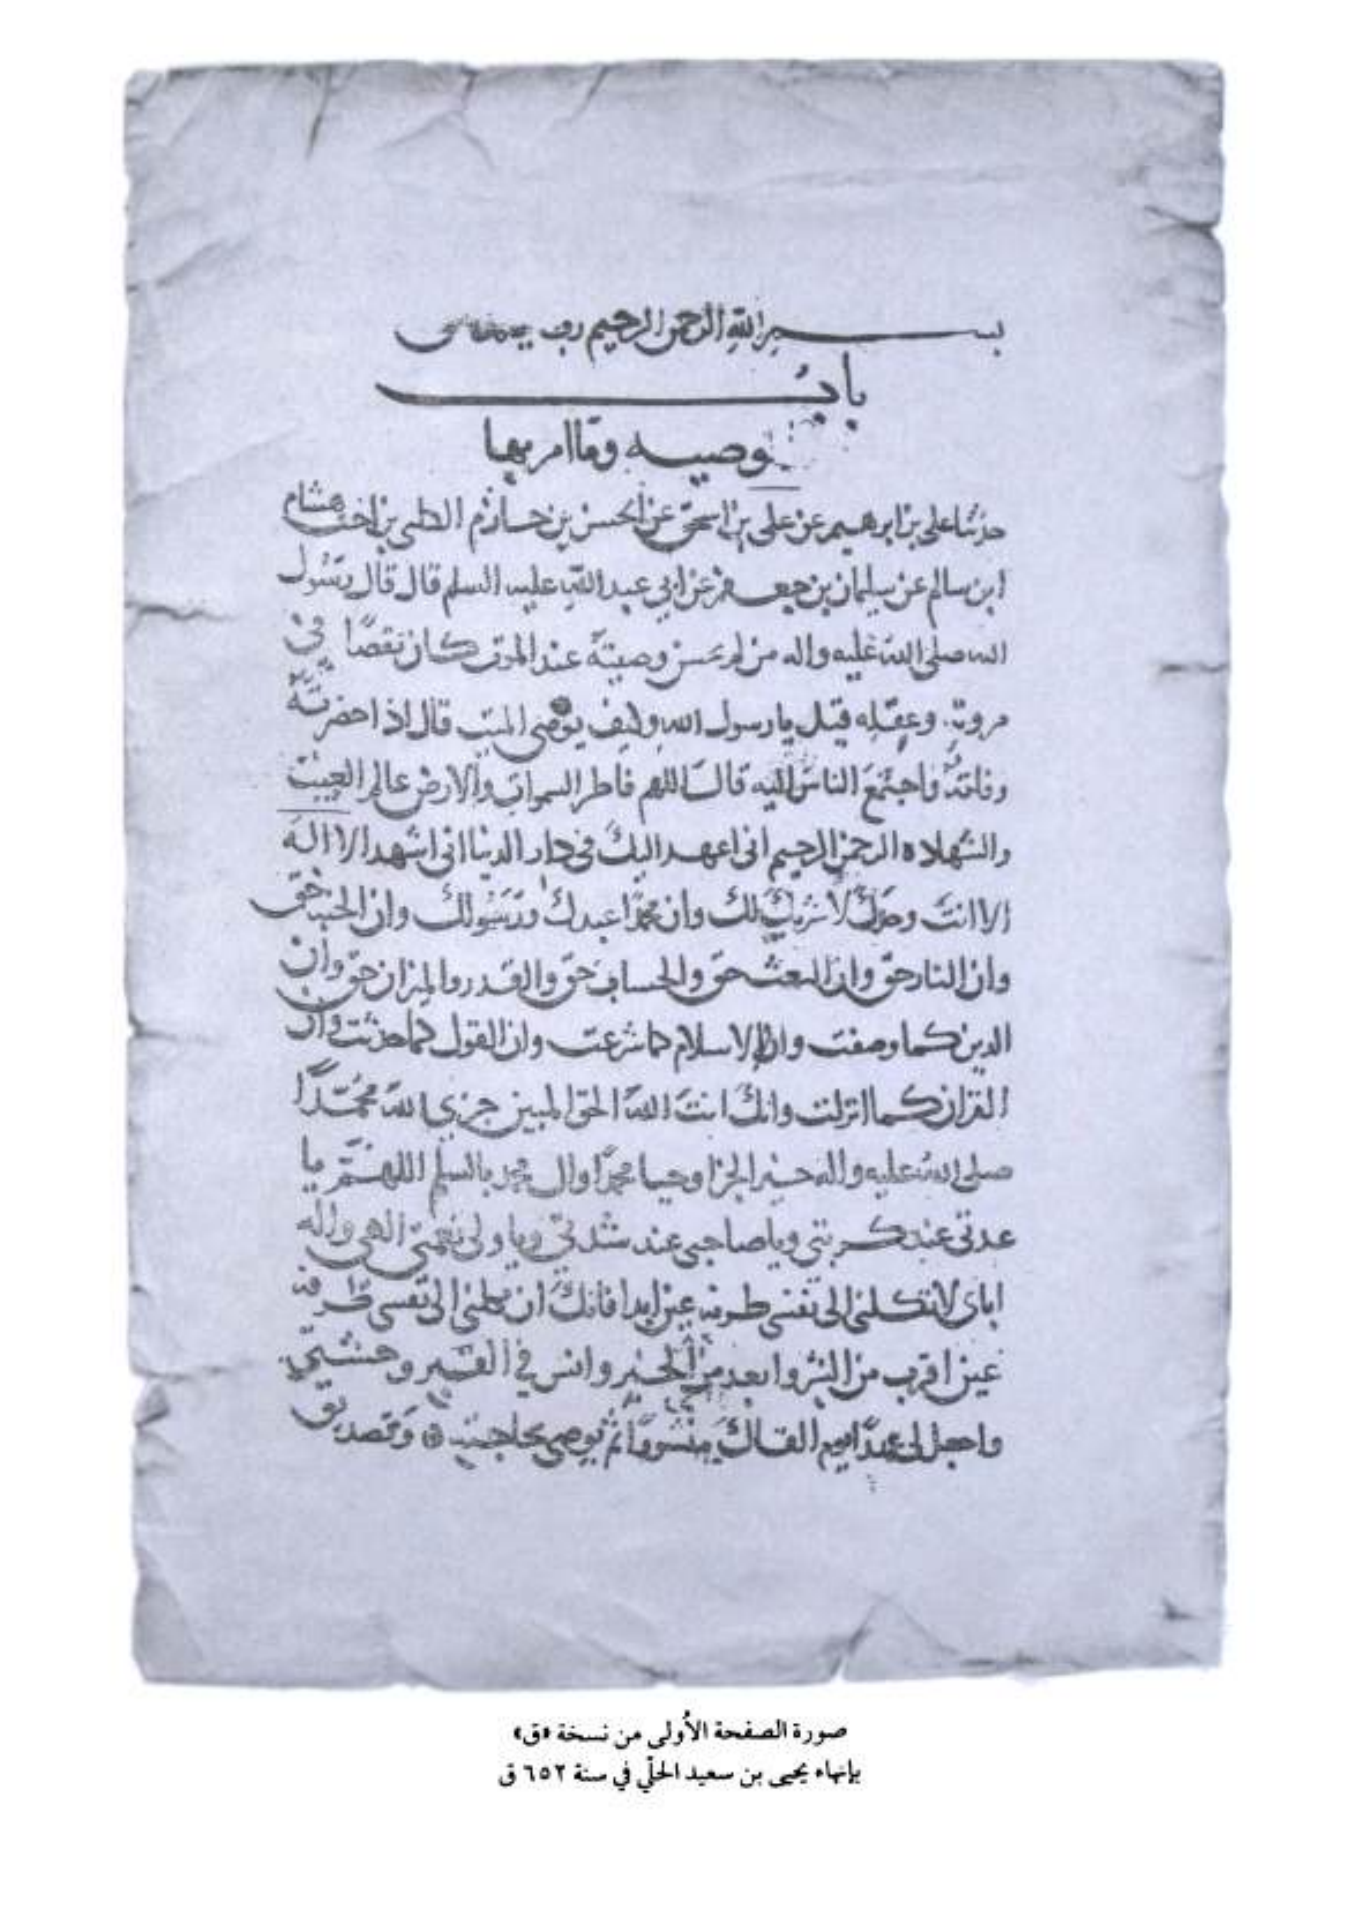 بسم الله الرحمن الرحيم رب
باب
الوصيه وما امر بها
حدثنا علي بن ابرهيم عن علي بن اسحق عن الحسن بن حازم الكلبي بن اخت هشام
ابن سالم عن سليمان بن جعفر عن ابي عبد الله عليه السلم قال قال رسول
الله صلى الله عليه واله من لم يحسن وصيته عند الموت كان نقصًا في
مروته وعقله قيل يا رسول الله وكيف يوصي الميت قال اذا حضرته
وفاته واجتمع الناس اليه قال اللهم فاطر السموات والارض عالم الغيب
والشهادة الرحمن الرحيم اني اعهد اليك في دار الدنيا اني اشهد الا اله
الا انت وحدك لا شريك لك وان محمدًا عبدك ورسولك وان الجنة حق
وان النار حق وان البعث حق والحساب حق والقدر والميزان حق وان
الدين كما وصفت وان الاسلام كما شرعت وان القول كما حدثت وان
القران كما انزلت وانك انت الله الحق المبين جزي الله محمّدًا
صلى الله عليه واله خير الجزا وحيا محمدًا وال محمد بالسلم اللهمّ يا
عدتي عند كربتي ويا صاحبي عند شدتي ويا ولي نعمتي الهي واله
اباي لا تكلني الى نفسي طرفه عين ابدا فانك ان تكلني الى نفسي طرفه
عين اقرب من الشر وابعد من الخير وانس في القبر وحشتي
واجعل لي عهدًا يوم القاك منشورًا ثم يوصي بحاجته وتصديق
صورة الصفحة الأولى من نسخة «ق»
بإنهاء يحيى بن سعيد الحلّي في سنة ٦٥٢ ق